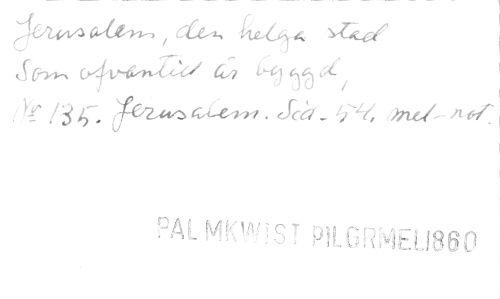 Jerusalem, den helga stad
Som ofvantill är byggd,
Nr 135. Jerusalem. Sid. 54. mel-not.
PALMKWIST PILGRMEL1860